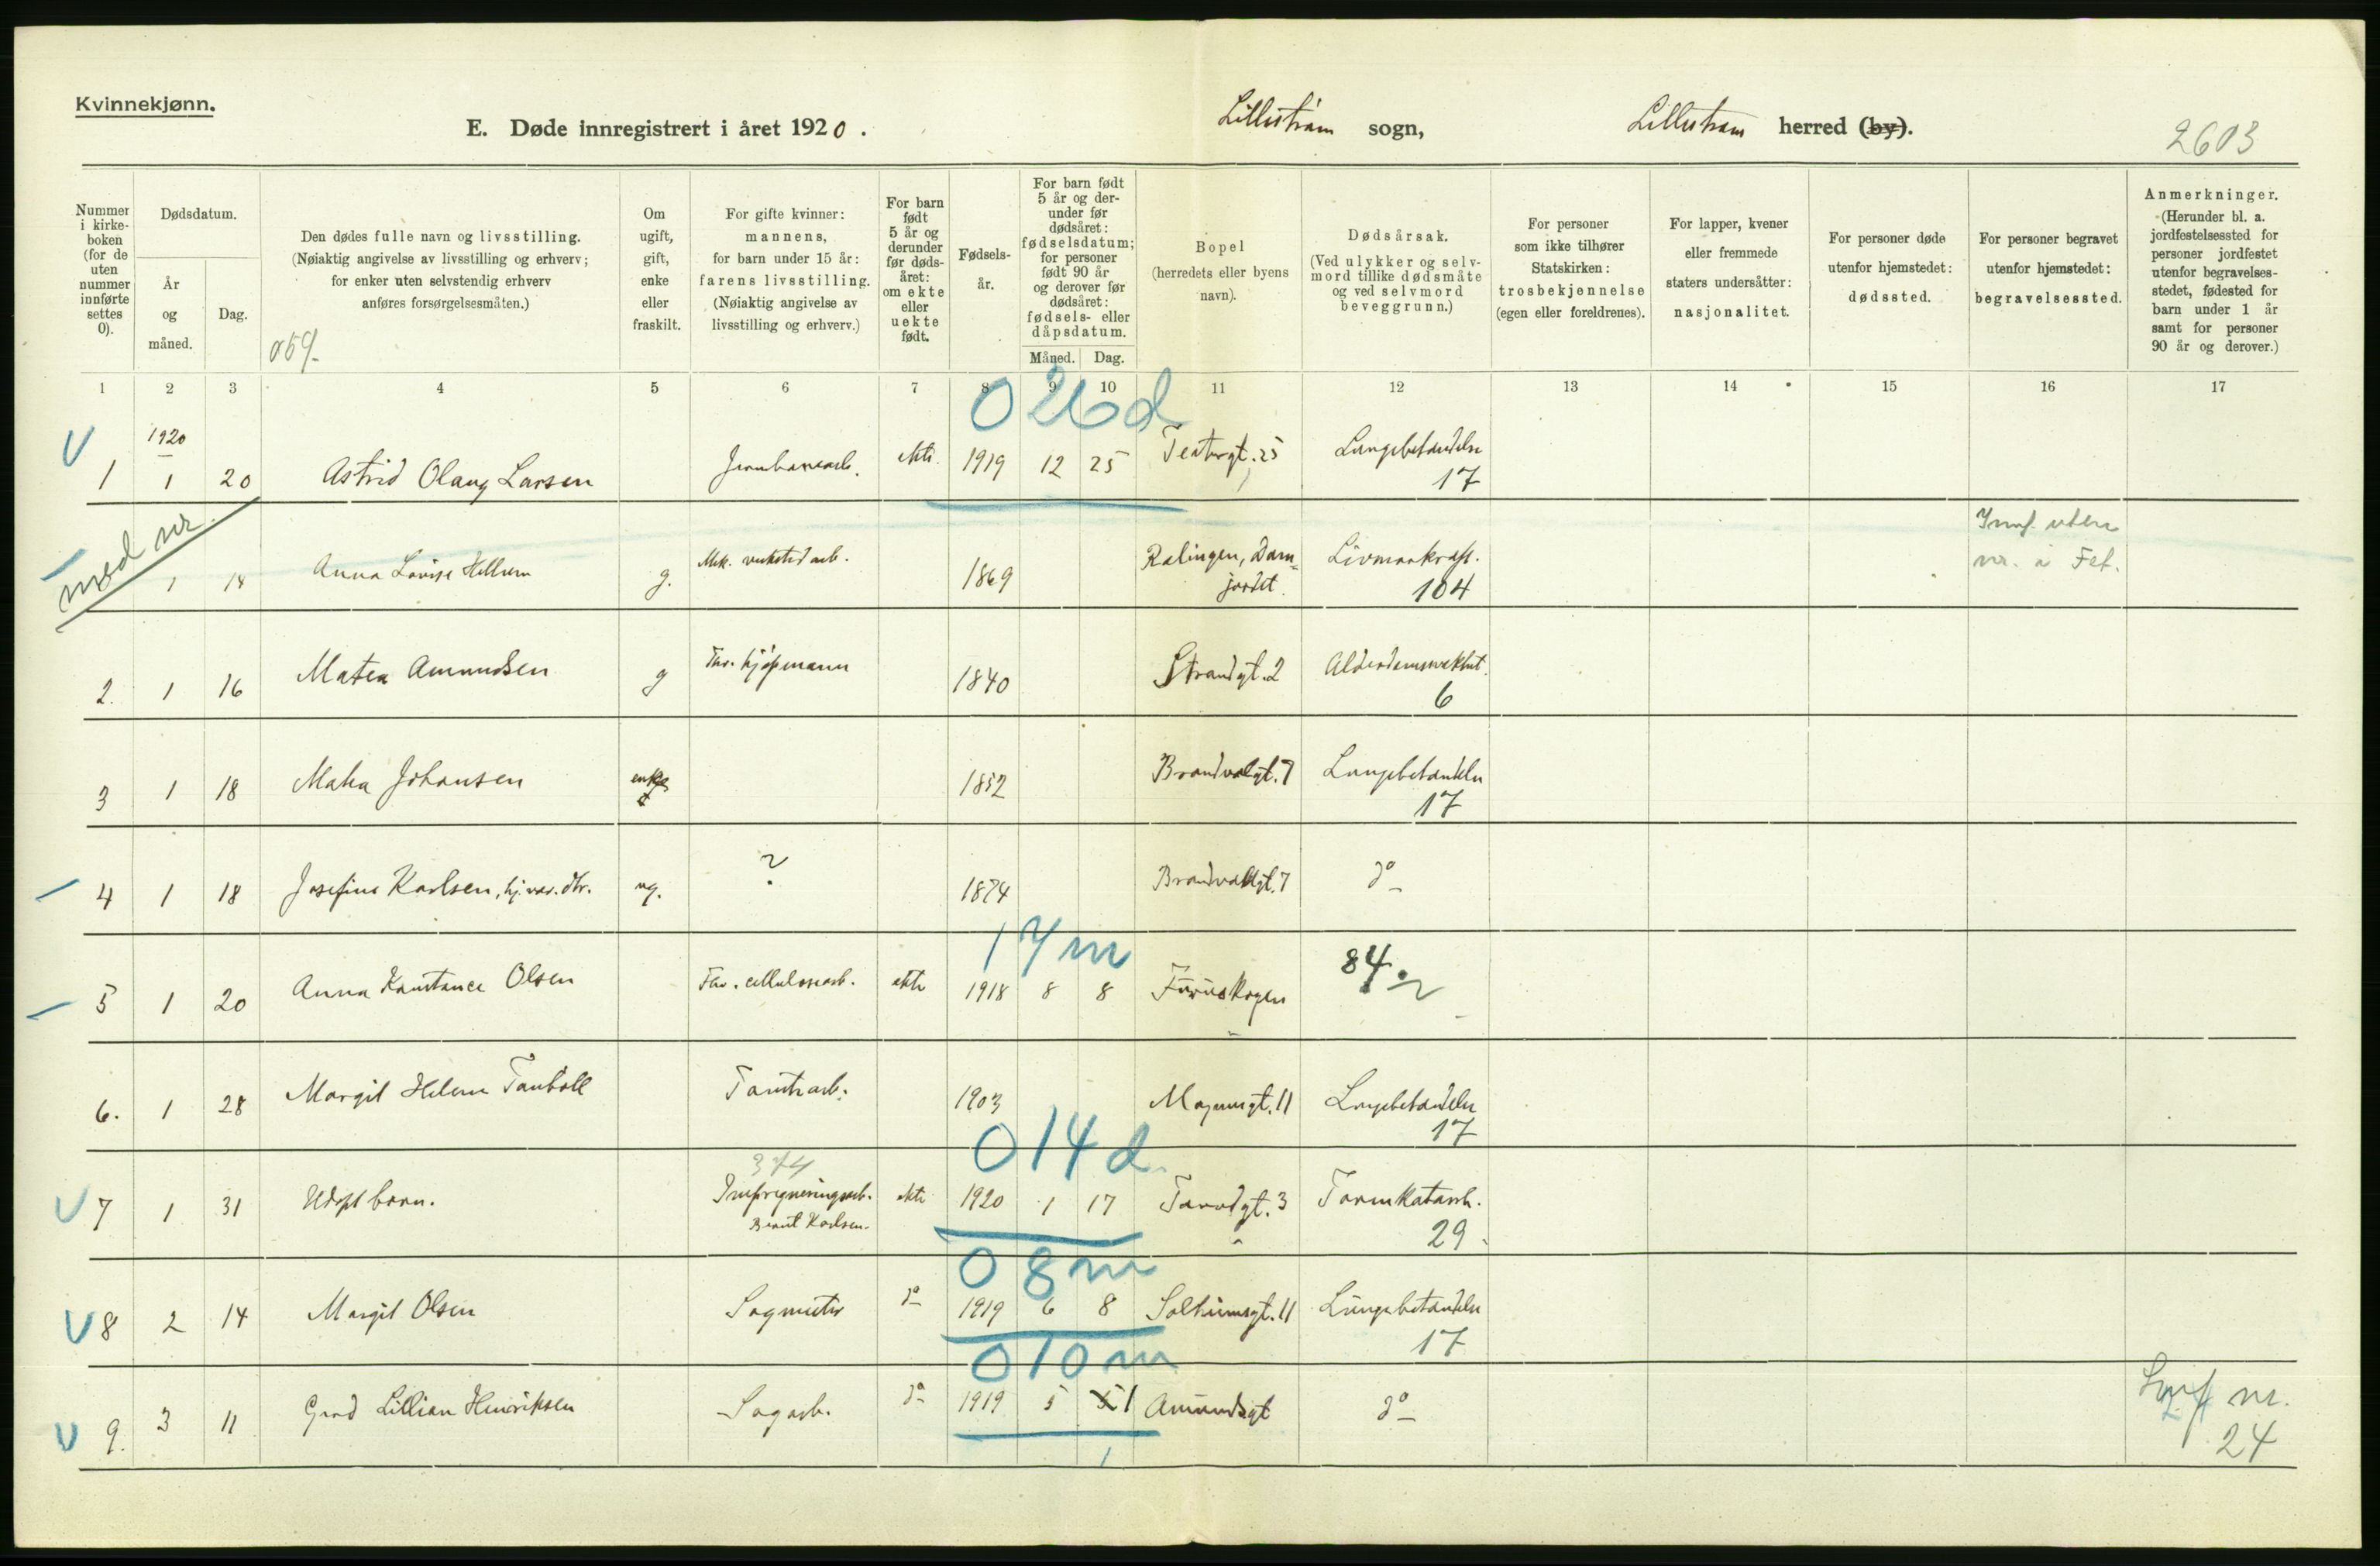 Kvinnekjønn.
E. Døde innregistrert i året 1920. Lillestrøm sogn, Lillestrøm herred (by).
2603
Nummer i kirke-boken (for de uten nummer innførte settes 0).
Dødsdatum.
År og måned.
Dag.
Den dødes fulle navn og livsstilling.
(Nøiaktig angivelse av livsstilling og erhverv;
for enker uten selvstendig erhverv
anføres forsørgelsesmåten.)
059.
Om ugift, gift, enke eller fraskilt.
For gifte kvinner:
mannens,
for barn under 15 år:
farens livsstilling.
(Nøiaktig angivelse av
livsstilling og erhverv.)
For barn født 5 år og derunder før døds-året: om ekte eller uekte født.
Fødsels-år.
For barn født 5 år og der-under før dødsåret: fødselsdatum; for personer født 90 år og derover før dødsåret: fødsels- eller dåpsdatum.
Måned. Dag.
Bopel
(herredets eller byens
navn).
Dødsårsak.
(Ved ulykker og selv-
mord tillike dødsmåte
og ved selvmord
beveggrunn.)
For personer
som ikke tilhører
Statskirken:
trosbekjennelse
(egen eller foreldrenes).
For lapper, kvener
eller fremmede
staters undersåtter:
nasjonalitet.
For personer døde
utenfor hjemstedet:
dødssted.
For personer begravet
utenfor hjemstedet:
begravelsessted.
Anmerkninger.
(Herunder bl. a.
jordfestelsessted for
personer jordfestet
utenfor begravelses-
stedet, fødested for
barn under 1 år
samt for personer
90 år og derover.)
1 2 3 4 5 6 7 8 9 10 11 12 13 14 15 16 17
0 26 d
V 1920
1 1 20 Astrid Olaug Larsen Jernbanearb. ekte 1919 12 25 Teatergt. 25 Lungebetændelse
17
med nr.
1 14 Anna Lovise Hellum g. Mek. verksted arb. 1869 Rælingen, Dam=
jordet. Livmorkræft.
104
Innf. uten
nr. i Fet.
2. 1 16 Matea Amundsen g Fhv. kjøpmann 1840 Strandgt. 2 Alderdomssvakhet.
6
3 1 18 Matea Johansen enke 1852 Brandvalgt. 7 Lungebetændelse
17
4 1 18 Josefine Karlsen, hj. vær. dtr. ug. ? 1874 Brandvalgt. 7 do
17 m
5 1 20 Anna Konstance Olsen Fhv. cellulosearb. ekte 1918 8 8 Furuskogen 84 ?
6. 1 28 Margit Helene Tomtarb. 1903 Magnusgt. 11 Lungebetændelse
17
0 14 d.
374
V 7 1 31 Udøpt barn. Impregneringsarb.
Bernt Karlsen. ekte 1920 1 17 Torvdgt. 3 Tarmkatarrh.
29.
0 8 m
V 8 2 14 Margit Olsen Sagmester do 1919 6 8 Solheimsgt. 11 Lungebetændelse
17
0 10 m
V 9. 3 11 Gerd Lillian Henriksen Sagarb. do 1919 5 1 Amundsgt do
Innf nr.
24